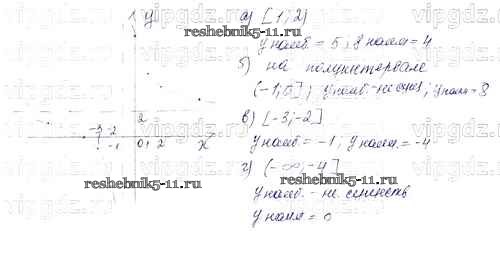 y
а) [1;2)
y наиб = 5, y наим = 4
б) на полуинтервале
(-1;0]; y наиб - не сущ; y наим = 8
2
в) [-3;-2]
-3 -2
-1
0 1 2
x
y наиб = -1, y наим. = -4
г) (-∞;-4]
y наиб - не существ
y наим = 0
reshebnik5-11.ru
reshebnik5-11.ru
reshebnik5-11.ru
vipgdz.ru
vipgdz.ru
vipgdz.ru